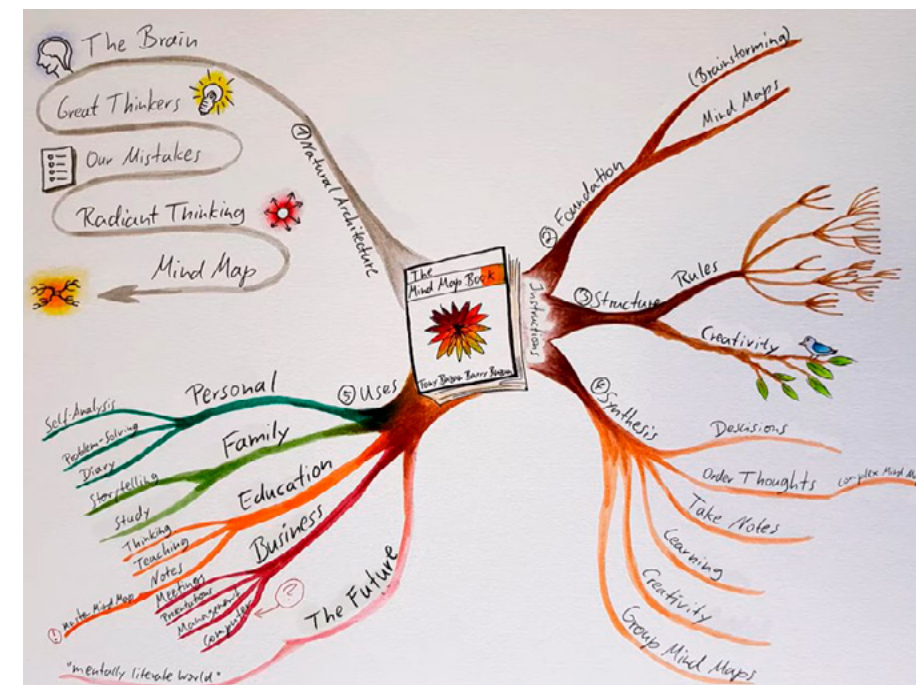 The Brain
Great Thinkers
Our Mistakes
Radiant Thinking
Mind Map
① Natural Architecture
The
Mind Map Book
Tony Buzan Barry Buzan
Instructions
② Foundation
(Brainstorming)
Mind Maps
③ Structure
Rules
Creativity
④ Synthesis
Descisions
Order Thoughts
Complex Mind
Take Notes
Learning
Creativity
Group Mind Maps
⑤ Uses
Personal
Self-Analysis
Problem-Solving
Diary
Family
Storytelling
Study
Education
Thinking
Teaching
Notes
Master Mind Map
!
Business
Meetings
Presentations
Management
Computer
?
The Future
"mentally literate world"